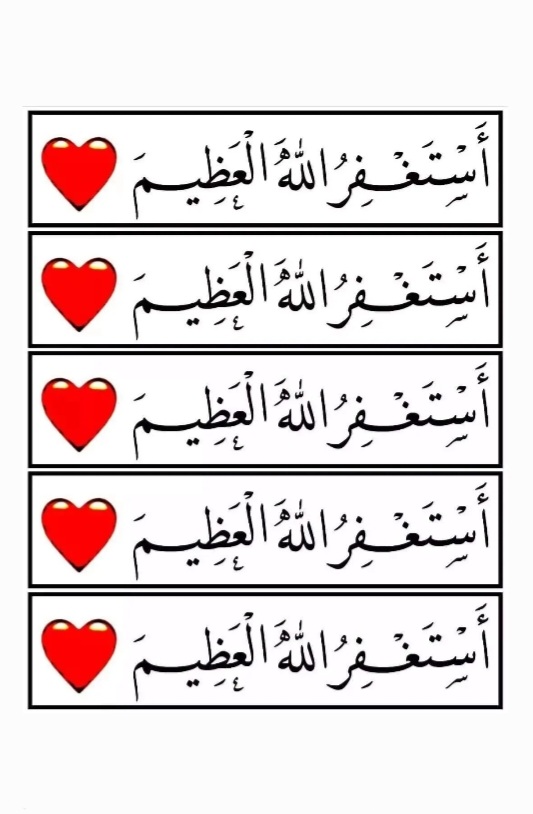 أَسْتَغْفِرُ اللهَ الْعَظِيمَ
أَسْتَغْفِرُ اللهَ الْعَظِيمَ
أَسْتَغْفِرُ اللهَ الْعَظِيمَ
أَسْتَغْفِرُ اللهَ الْعَظِيمَ
أَسْتَغْفِرُ اللهَ الْعَظِيمَ